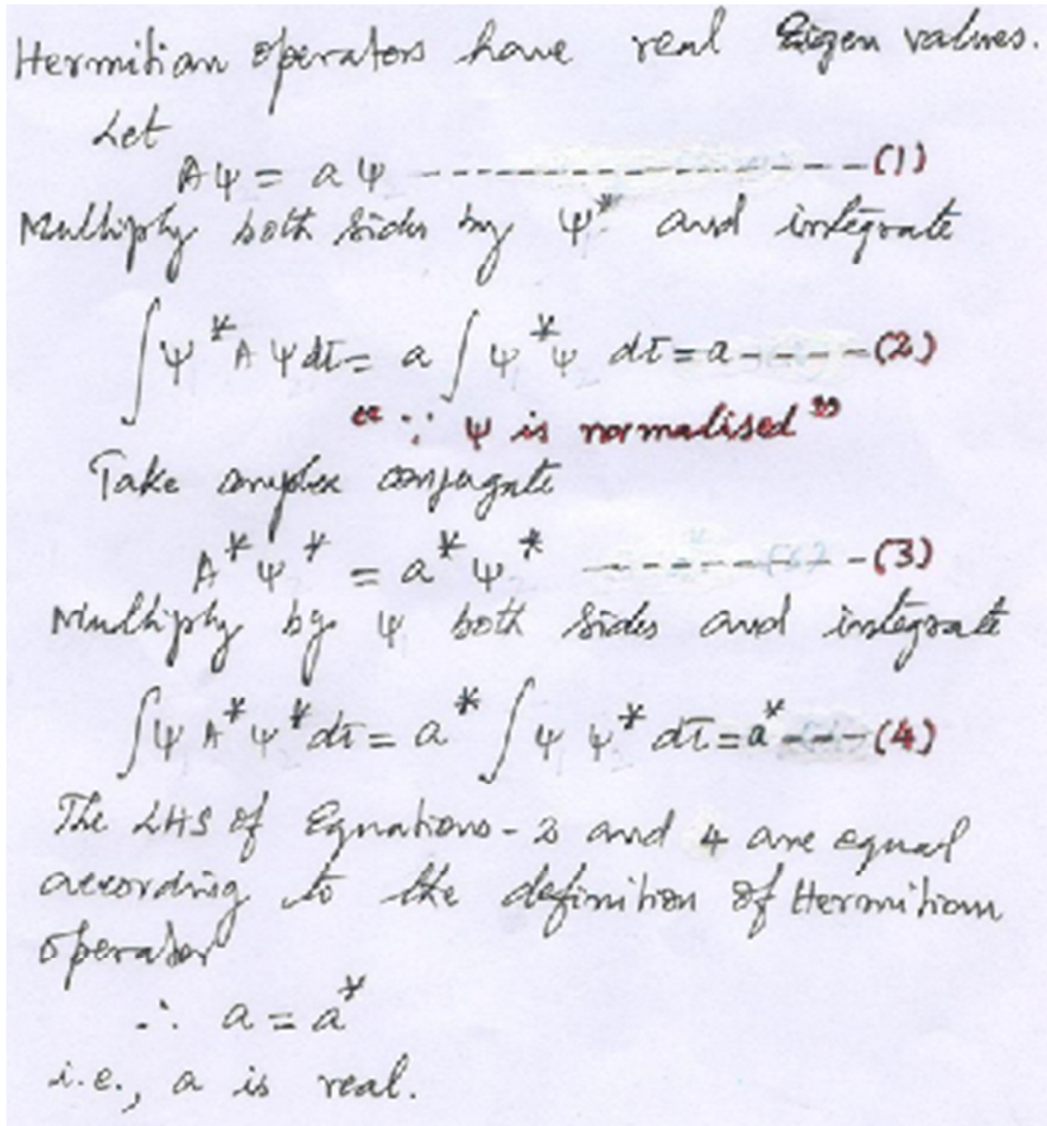 Hermitian operators have real Eigen values.
Let
Aψ = aψ ---------------- (1)
Multiply both sides by ψ* and integrate
∫ψ*Aψdτ = a∫ψ*ψ dτ = a ---- (2)
"∵ ψ is normalised"
Take complex conjugate
A*ψ* = a*ψ* --------- (3)
Multiply by ψ both sides and integrate
∫ψA*ψ*dτ = a*∫ψψ* dτ = a* --- (4)
The LHS of Equations - 2 and 4 are equal
according to the definition of Hermitian
operator
∴ a = a*
i.e., a is real.